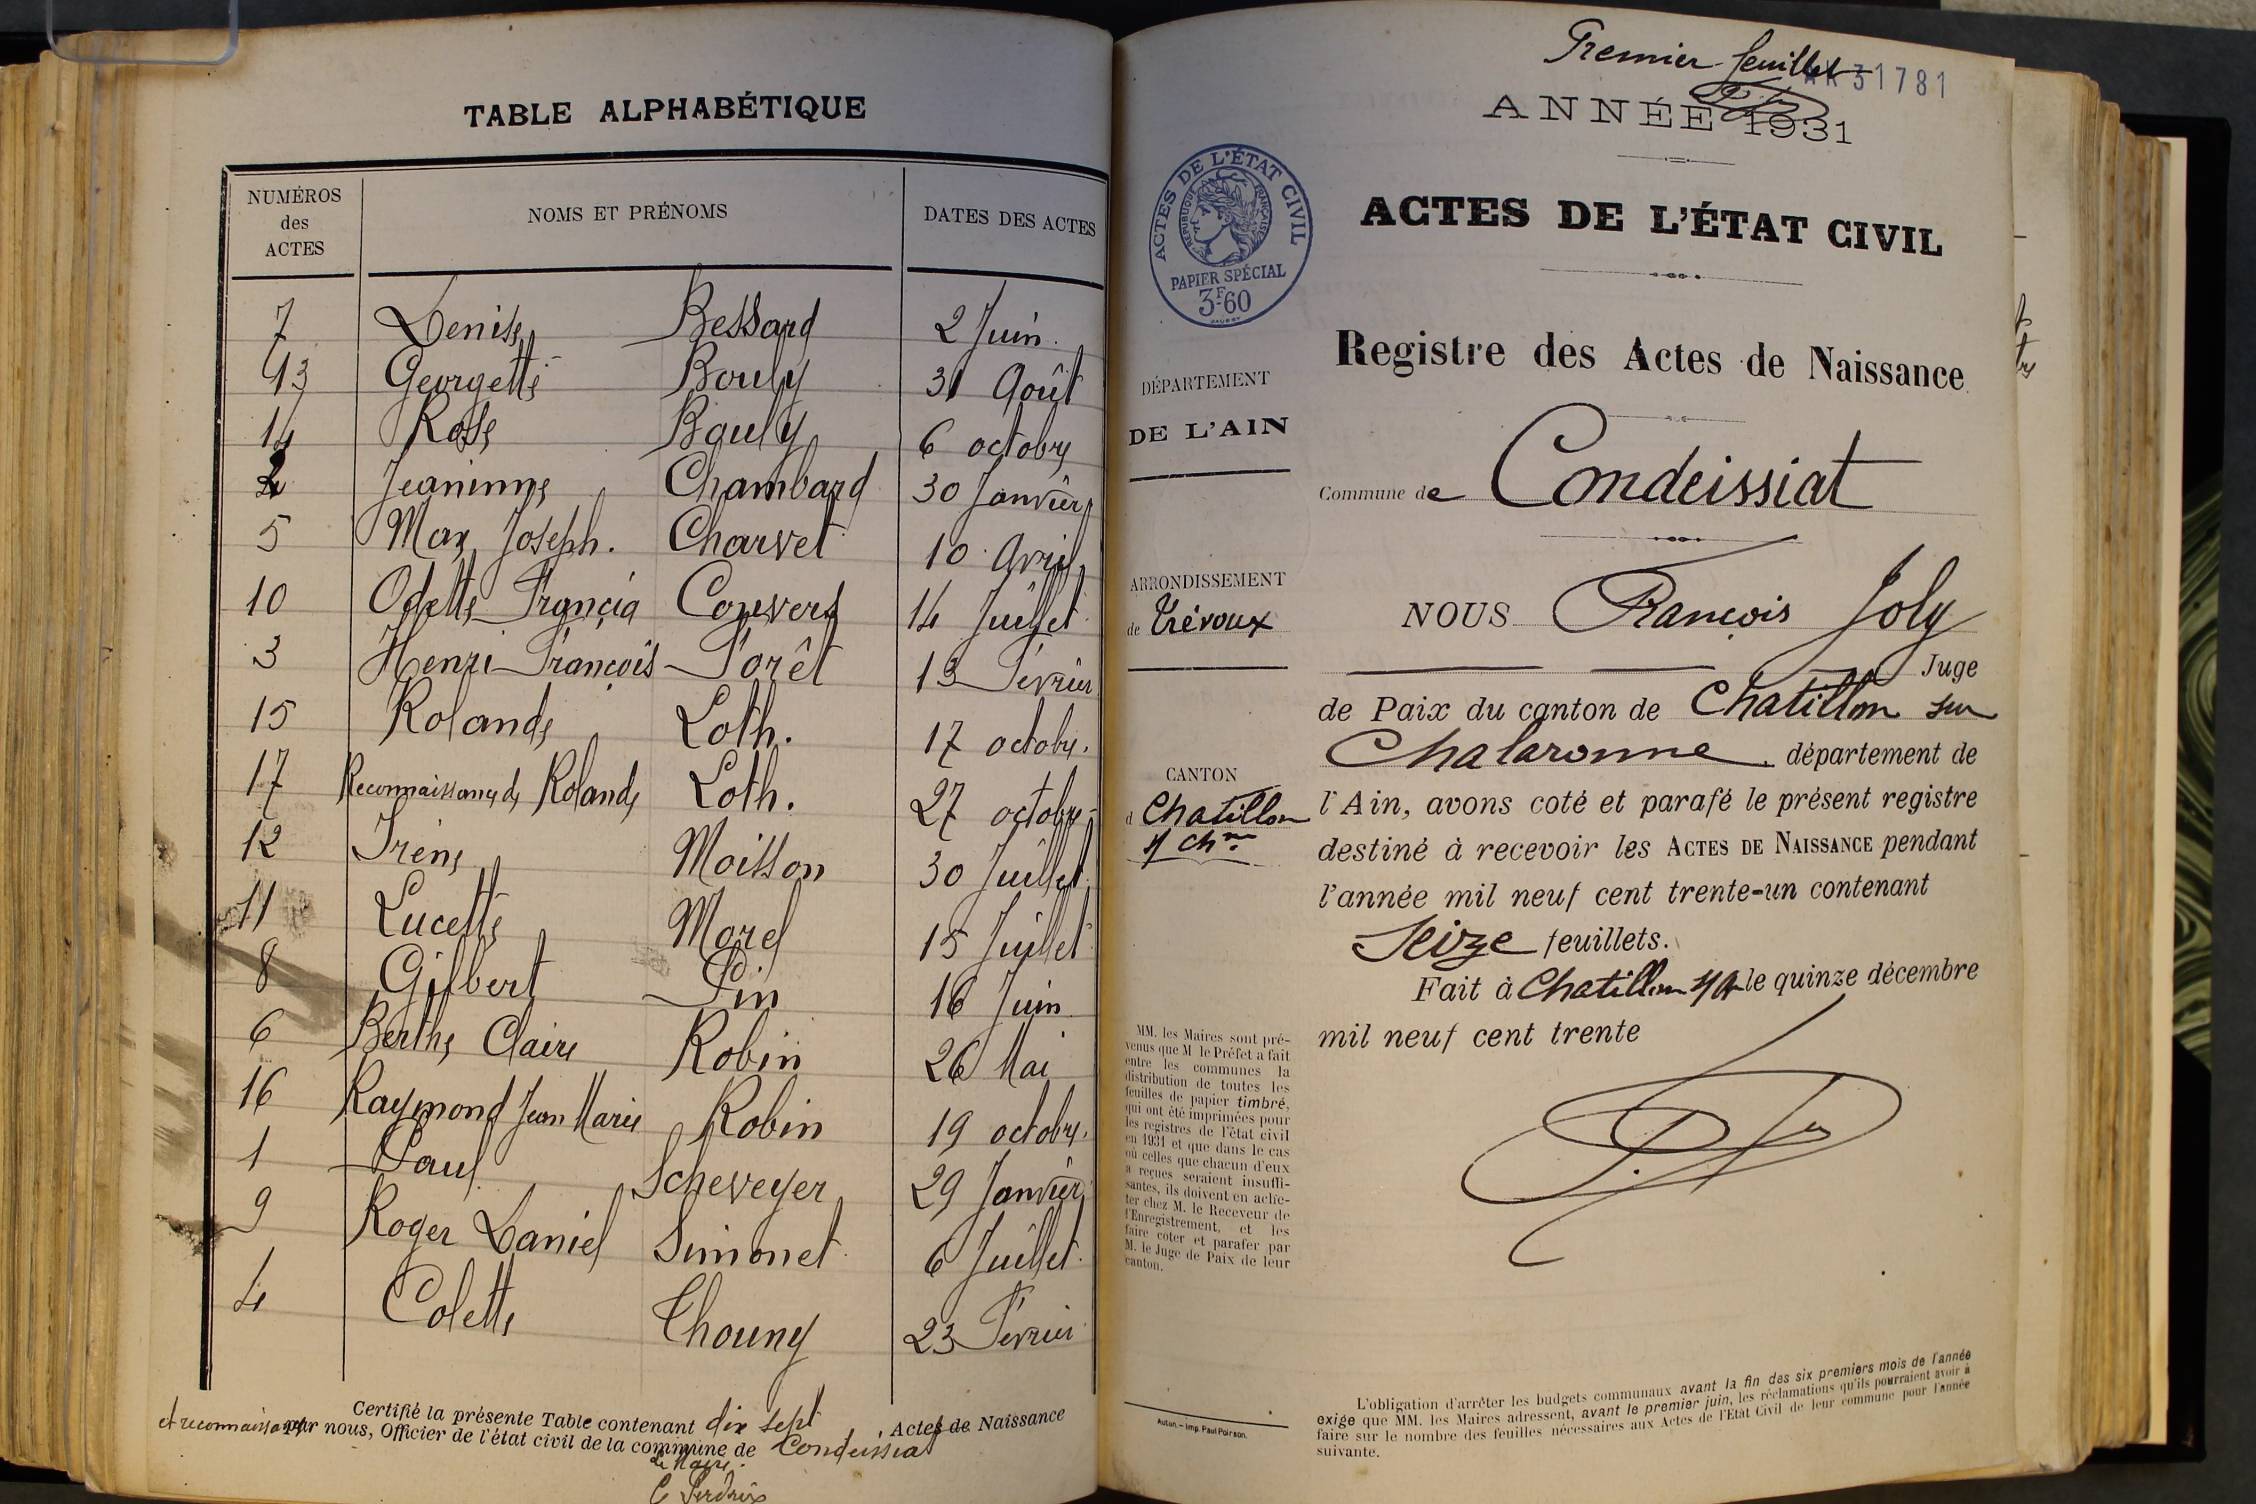 TABLE ALPHABÉTIQUE
NUMÉROS des ACTES NOMS ET PRÉNOMS DATES DES ACTES
7 Denise Bessard 2 Juin.
13 Georgette Bouly 31 Août
14 Rose Bouly 6 octobre
2 Jeaninne Chambard 30 Janvier
5 Max Joseph. Charvet 10 Avril
10 Odette Francia Convert 14 Juillet
3 Henri François Forêt 13 Février
15 Rolande Loth. 17 octobre.
17 Reconnaissance de Rolande Loth. 27 octobre
12 Irène Moisson 30 Juillet
11 Lucette Morel 15 Juillet
8 Gilbert Pin 16 Juin
6 Berthe Claire Robin 26 Mai
16 Raymond Jean Marie Robin 19 octobre.
1 Paul Scheveyer 29 Janvier
9 Roger Daniel Simonet 6 Juillet.
4 Colette Thouny 23 Février
Certifié la présente Table contenant dix sept Actes de Naissance
et reconnaissance par nous, Officier de l'état civil de la commune de Condeissiat
Le Maire.
C Perdrix
Premier feuillet
31781
ANNÉE 1931
ACTES DE L'ÉTAT CIVIL
RÉPUBLIQUE FRANÇAISE
PAPIER SPÉCIAL
3F60
ACTES DE L'ÉTAT CIVIL
Registre des Actes de Naissance
DÉPARTEMENT
DE L'AIN
Commune de Condeissiat
ARRONDISSEMENT
de Trévoux
CANTON
d Chatillon
s/ Chne.
NOUS François Joly
Juge
de Paix du canton de Chatillon sur
Chalaronne département de
l'Ain, avons coté et parafé le présent registre
destiné à recevoir les ACTES DE NAISSANCE pendant
l'année mil neuf cent trente-un contenant
Seize feuillets.
Fait à Chatillon s/ le quinze décembre
mil neuf cent trente
MM. les Maires sont pré-
venus que M le Préfet a fait
entre les communes la
distribution de toutes les
feuilles de papier timbré,
qui ont été imprimées pour
les registres de l'état civil
en 1931 et que dans le cas
où celles que chacun d'eux
a reçues seraient insuffi-
santes, ils doivent en ache-
ter chez M. le Receveur de
l'Enregistrement, et les
faire coter et parafer par
M. le Juge de Paix de leur
canton.
Autun. – Imp. Paul Poirson.
L'obligation d'arrêter les budgets communaux avant la fin des six premiers mois de l'année
exige que MM. les Maires adressent, avant le premier juin, les réclamations qu'ils pourraient avoir à
faire sur le nombre des feuilles nécessaires aux Actes de l'Etat Civil de leur commune pour l'année
suivante.